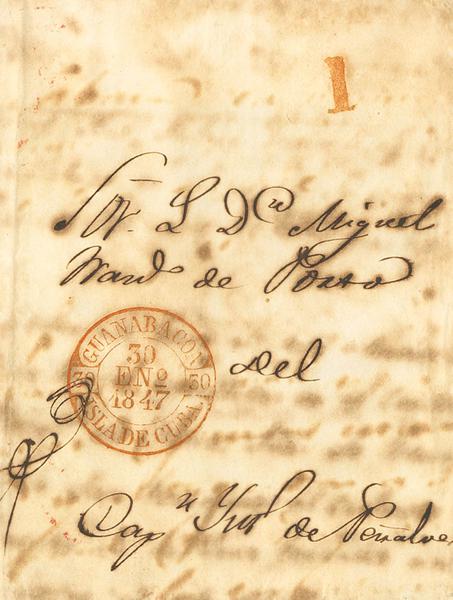 1
Sr. L Dn Miguel
Nardo de Porto
GUANABACOA
30
30 ENº 30
1847
ISLA DE CUBA
Del
Capn de Peñalve